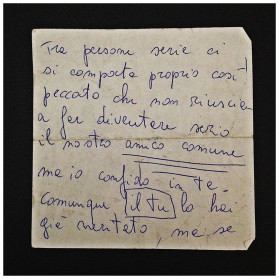 Tra persone serie ci
si comporta proprio così!
peccato che non riuscirai
a far diventare serio
il nostro amico comune
ma io confido in te.
Comunque il tu lo hai
già meritato, ma se